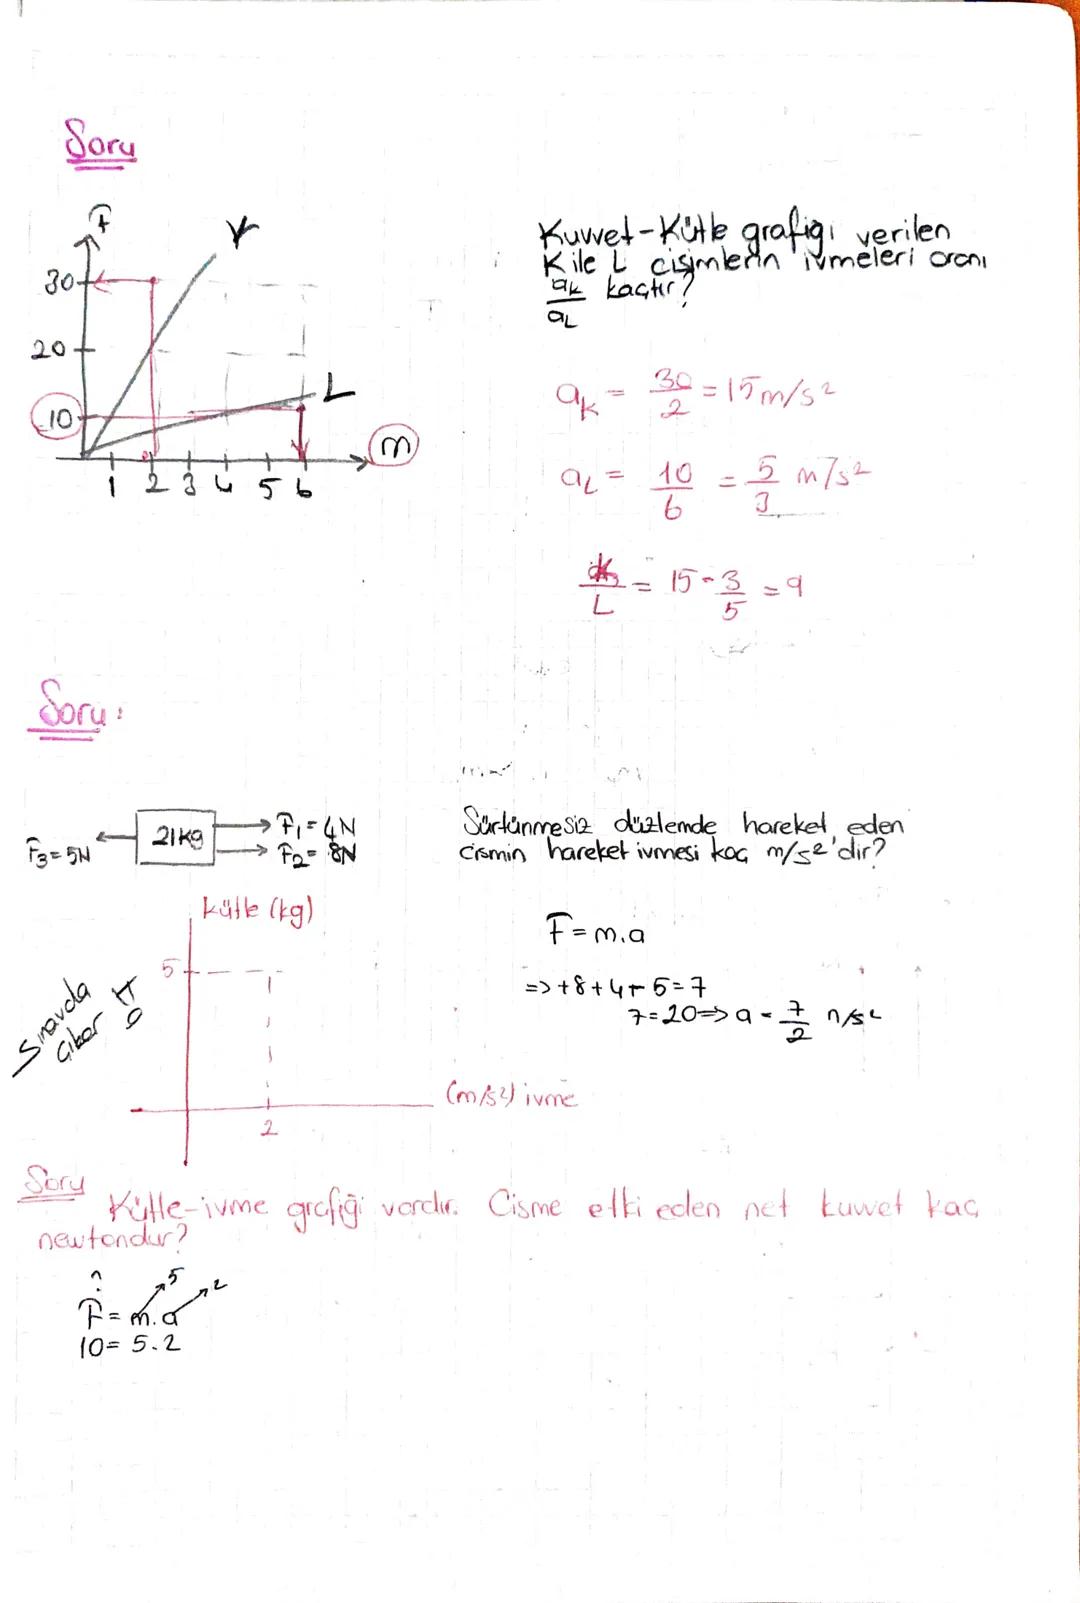 Soru
F
K
30
20
10
L
m
1 2 3 4 5 6
Kuvvet-Kütle grafiği verilen
K ile L cisimlerin ivmeleri oranı
aK/aL kaçtır?
aK = 30/2 = 15 m/s²
aL = 10/6 = 5/3 m/s²
K/L = 15 - 3/5 = 9
Soru:
F3=5N
21kg
F1=4N
F2=8N
Sürtünmesiz düzlemde hareket eden
cismin hareket ivmesi kaç m/s²'dir?
F=m.a
=> +8+4-5=7
7=2a => a = 7/2 m/s²
kütle (kg)
5
2
(m/s²) ivme
Sınavda
Çıkar !!
Soru
Kütle-ivme grafiği vardır. Cisme etki eden net kuvvet kaç
newtondur?
?
5
2
F=m.a
10=5.2